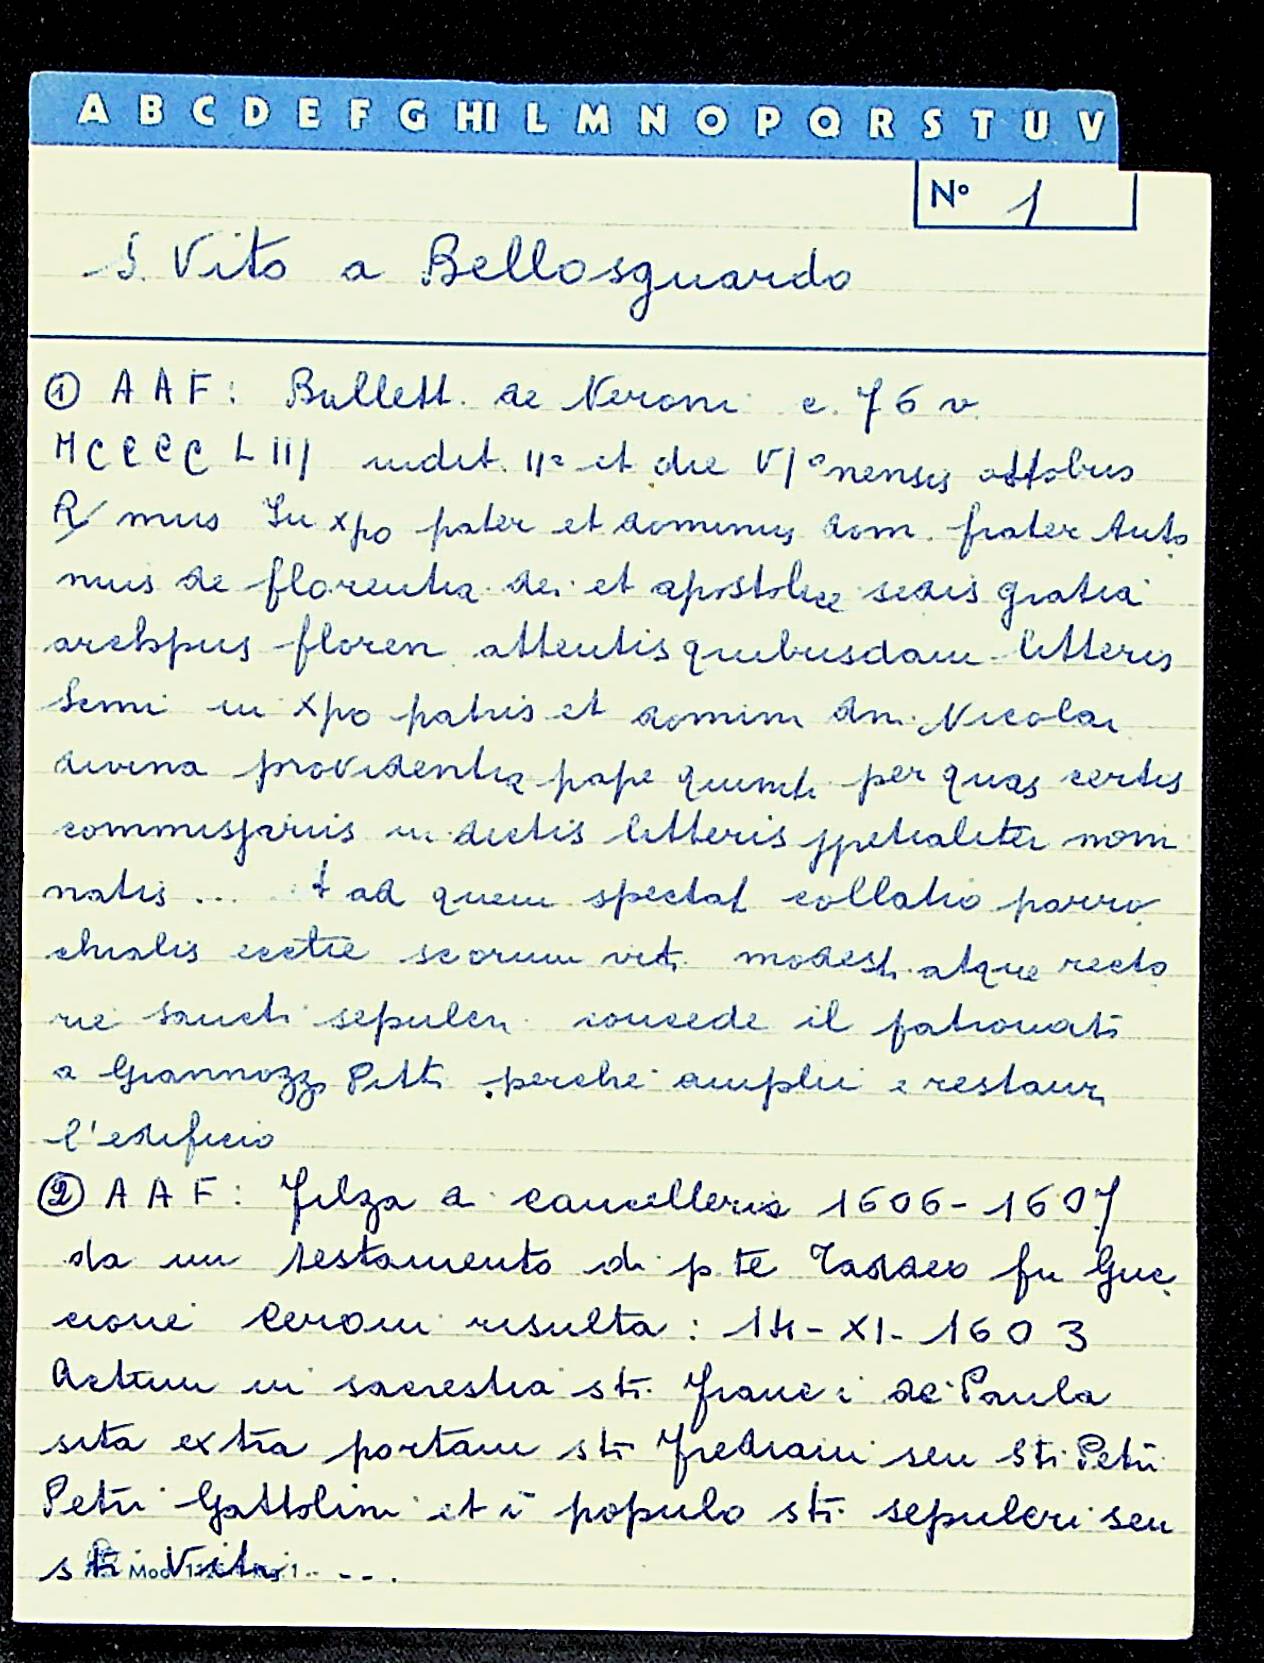 A B C D E F G HI L M N O P Q R S T U V
N° 1
S. Vito a Bellosguardo
① A A F : Bullett. de Neroni c. 76 v.
MCCCC LIII indit. IIa et die VIa mensis ottobris
R/mus In xpo pater et dominus dom. frater Anto
nius de florentia dei et apostolice sedis gratia
archpus floren. attentis quibusdam litteris
Semi in xpo patris et domini dni. Nicolai
divina providentia pape quinti per quas certis
commissariis in dictis litteris spetialiter nomi
natis ... + ad quem spectat collatio parro
chialis ecctie scorum viti modesti atque recto
rie sancti sepulcri concede il patronato
a Giannozzo Pitti perchè amplii e restauri
l'edificio
② A A F : Filza a cancelleria 1606-1607
da un testamento di p. te Taddeo fu Guc
cione Ceroni risulta : 14-XI-1603
Actum in sacrestia sti. Franc i de Paula
sita extra portam sti Frediani seu Sti. Petri
Petri Gattolini et i populo sti. sepulcri seu
sti Viti ....